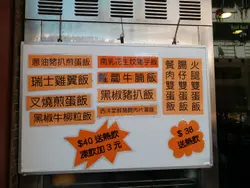 蔥油豬扒煎蛋飯
瑞士雞翼飯
叉燒煎蛋飯
黑椒牛柳粒飯
南乳花生炆豬手飯
蘿蔔牛腩飯
黑椒豬扒飯
西洋菜鮮豬骨肉片湯飯
餐肉雙蛋飯
腸仔雙蛋飯
火腿雙蛋飯
$40送熱飲
凍飲加3元
$38
送熱飲